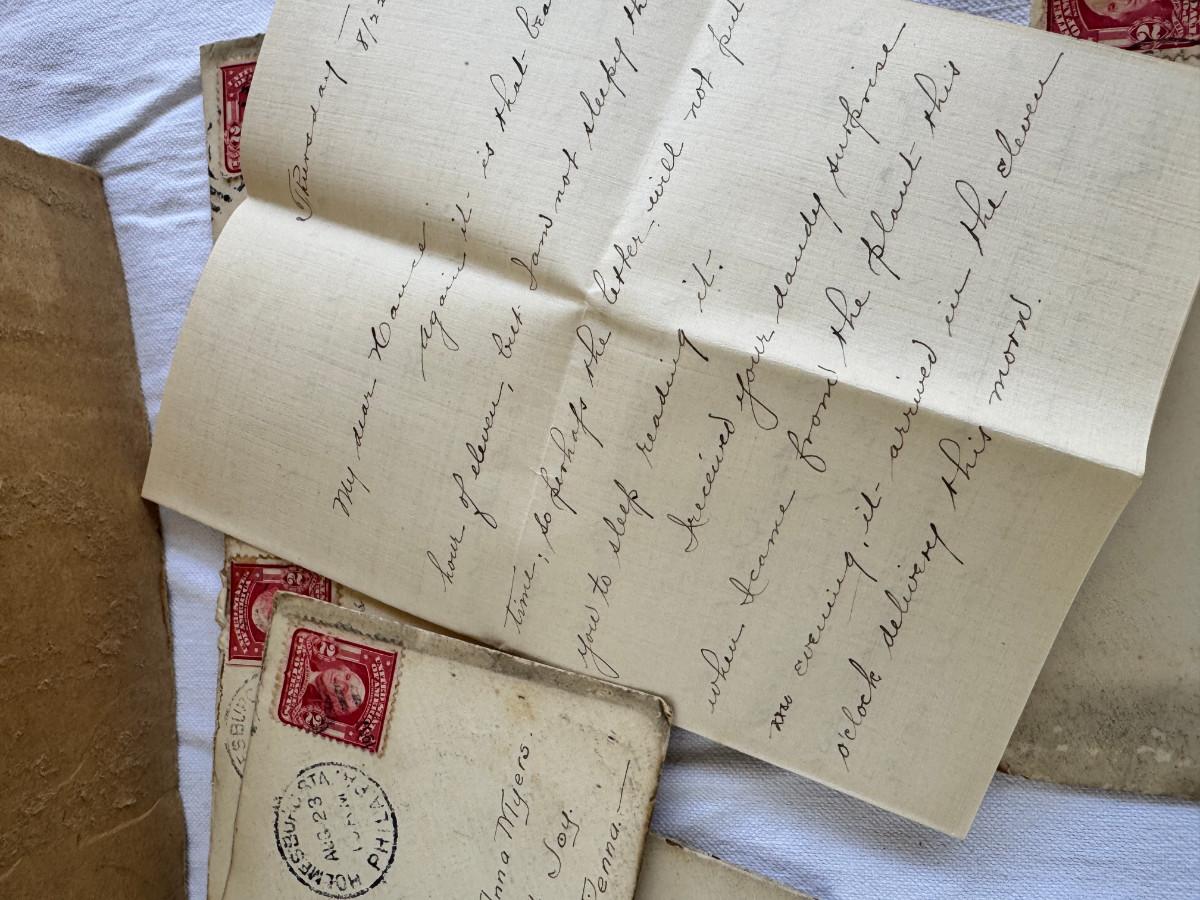 Thursday
8/22
My dear Hance
again it is that
hour of eleven, but I am not sleepy
time, so perhaps the letter will not put
you to sleep reading it.
I received your dandy surprise
when I came from the plant this
evening, it arrived in the eleven
o'clock delivery this morn.
HOLMESBURG STA.
PHILA. PA.
AUG 23
AM
nna Myers.
Joy.
Penna.
UNITED STATES
OF AMERICA
2
2
UNITED STATES
OF AMERICA
2
SBU